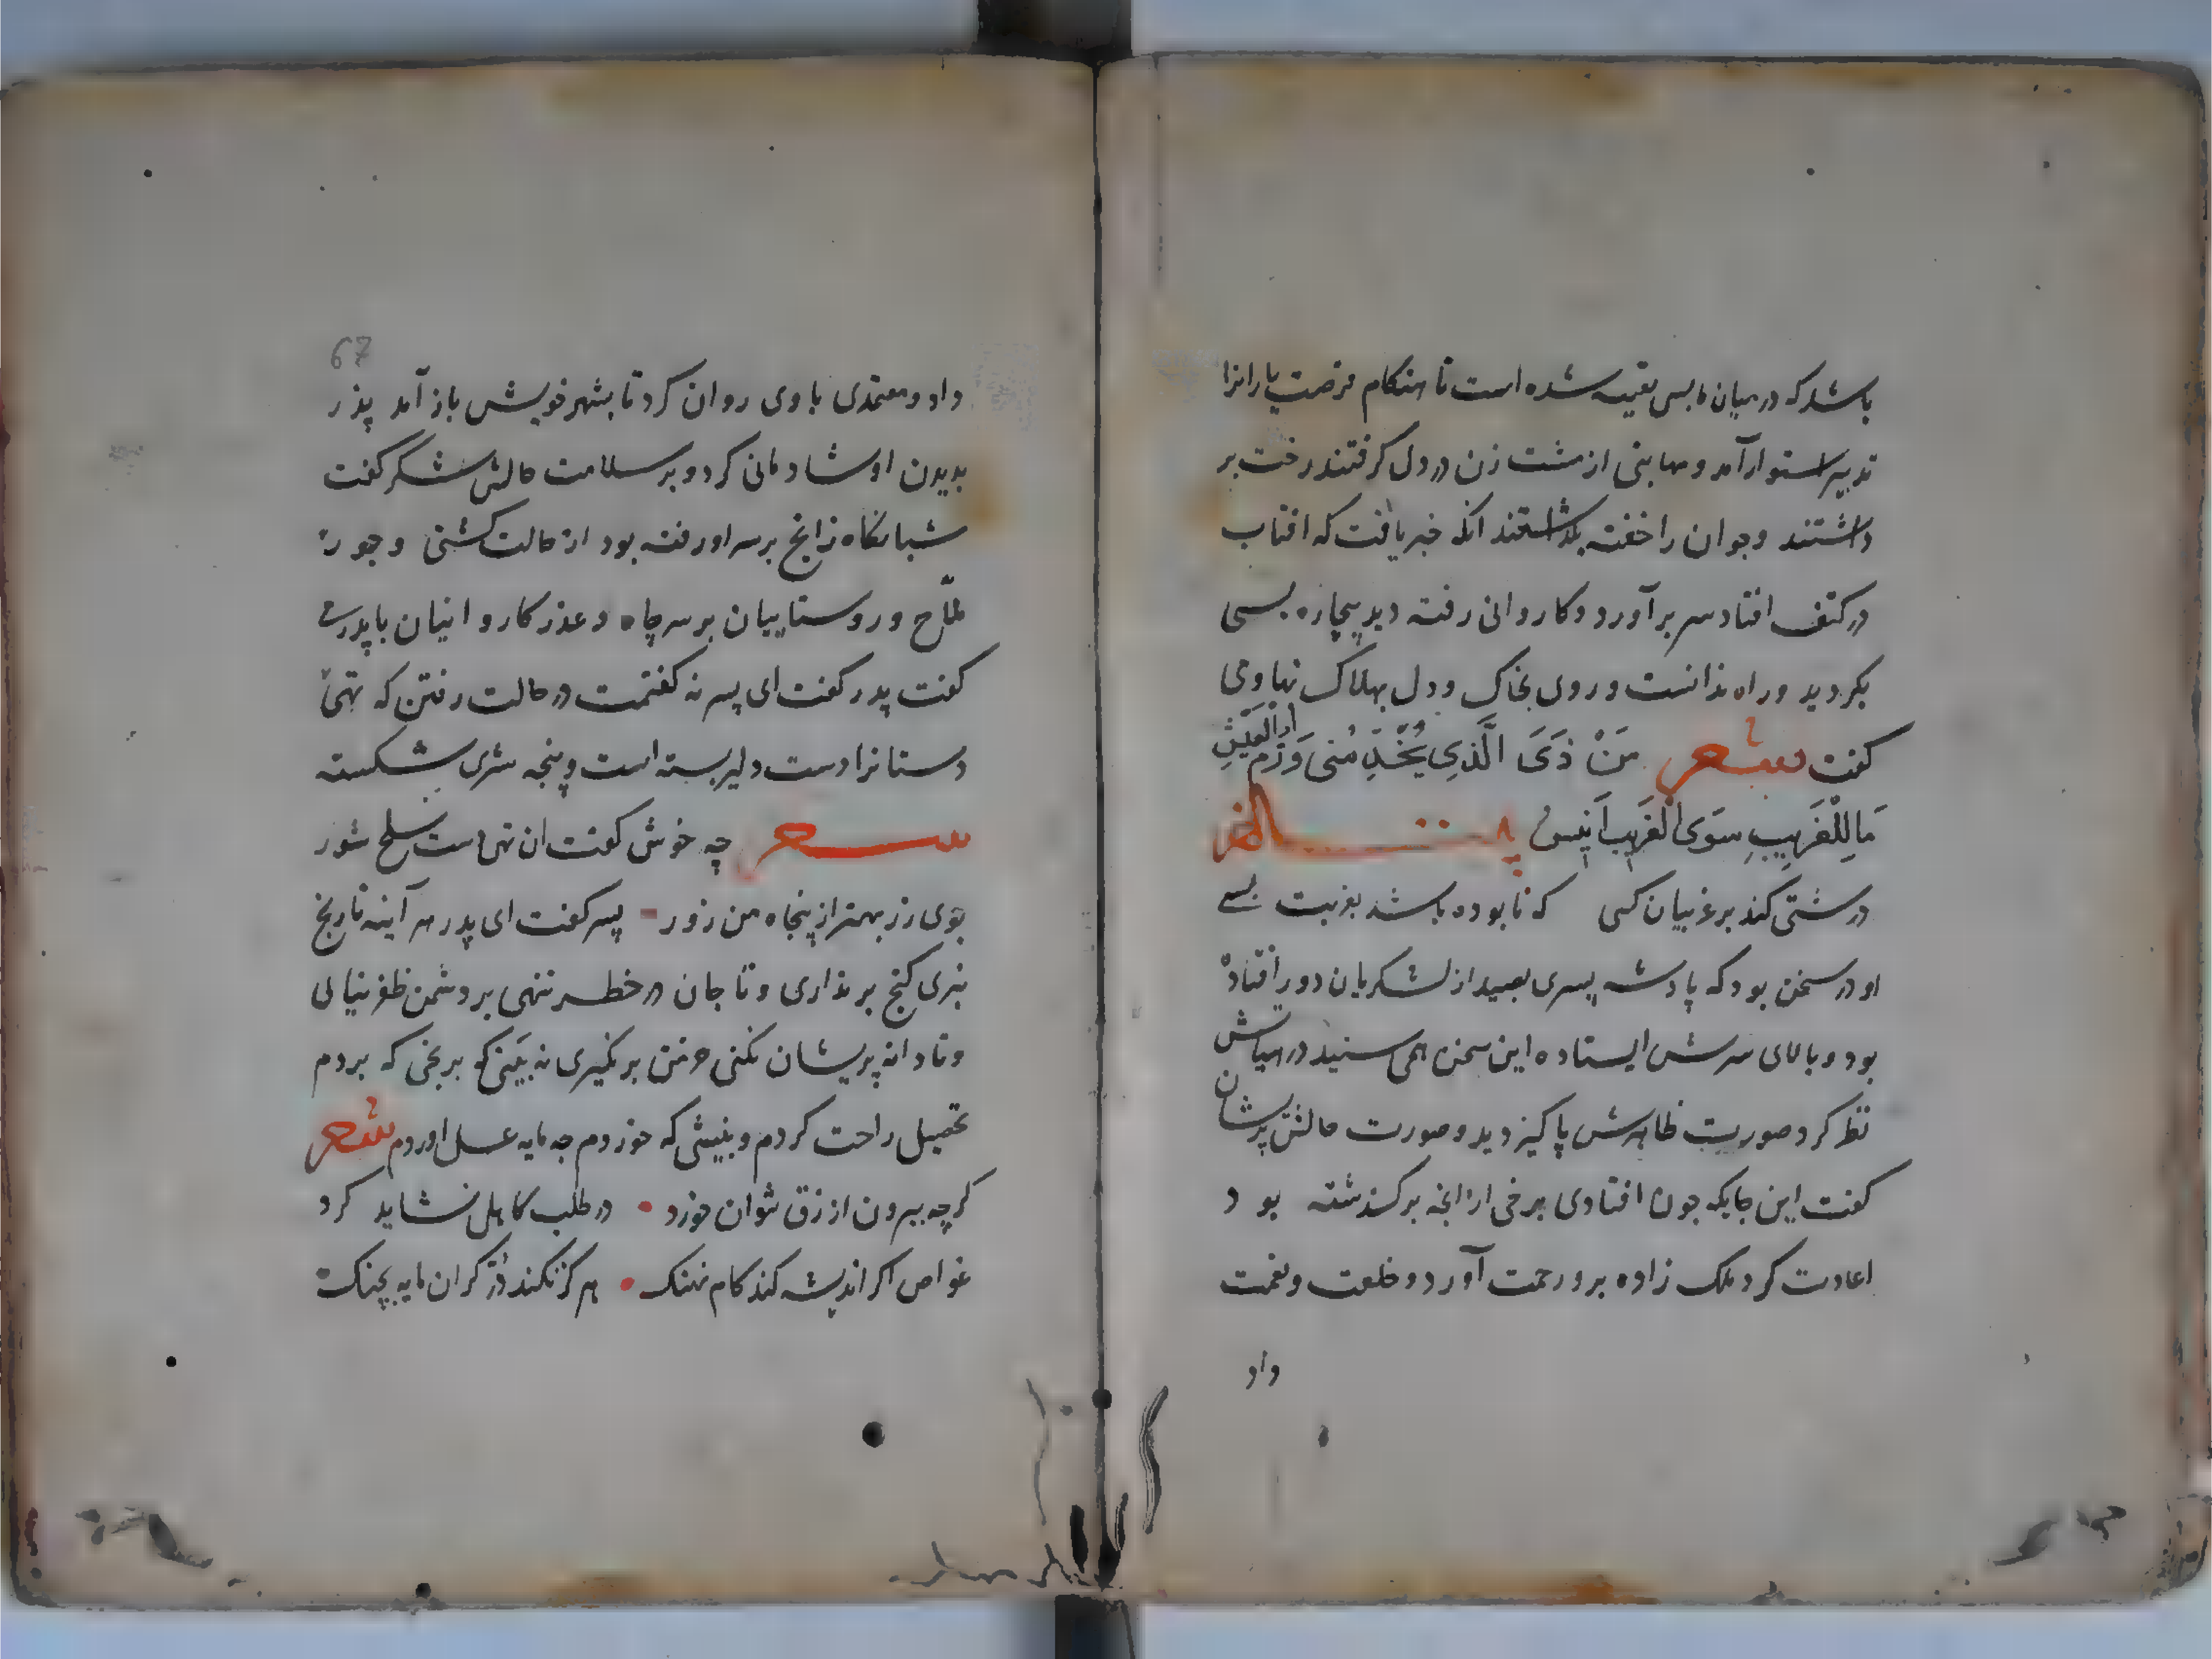 باشد که در میان ما بس تعبیه شده است تا هنکام فرصت یارانرا
تدبیر استوار آمد و مهابتی از مشت زن در دل کرفتند رخت بر
داشتند و جوان را خفته بکذاشتند انکه خبر یافت که افتاب
در کتف افتاد سر برآورد و کاروانی رفته دید بیچاره بسی
بکردید و راه ندانست و روی بخاک و دل بهلاک نهاد و می
کفت شعر مَنْ ذَیَ الَّذِی یُحَدِّثُنی وَزُمَّ الْعِیْسِ
مَا لِلْغَرِیبِ سَوَی الْغَرِیبِ اَنِیسُ
درشتی کند بر غریبان کسی که نابوده باشد بغربت بسے
او در سخن بود که پادشه پسری بصید از لشکریان دور افتاده
بود و بالای سرش ایستاده این سخن همی شنید در هیاتش
نظر کرد صورت ظاهرش پاکیزه دید و صورت حالش پریشان
کفت این جایکه جون افتادی برخی از انجه بر کذشته بود
اعادت کرد ملک زاده برو رحمت آورد و خلعت و نعمت
داد
67
داد و معتمدی با وی روان کرد تا بشهر خویش باز آمد پذر
بدیدن او شادمانی کرد و بر سلامت حالش شکر کفت
شبانکاه ز انچ بر سر او رفته بود از حالت کشتی و جور
ملّاح و روستاییان بر سر چاه و عذر کاروانیان با پدر می
کفت پدر کفت ای پسر نه کفتمت در حالت رفتن که تهی
دستانرا دست دلیر بسته است و پنجه شری شکسته
شعر چه خوش کفت ان تهی دست سلح شور
جوی زر بهتر از پنجاه من زور پسر کفت ای پدر هر آینه تا رنج
نبری کنج بر نداری و تا جان در خطر ننهی بر دشمن ظفر نیالی
و تا دانه پریشان نکنی خرمن بر نکیری نه بینی که برنجی که بردم
تحصیل راحت کردم و بنیشی که خوردم چه مایه عسل اوردم شعر
کرچه بیرون از رزق نتوان خورد در طلب کاهلی نشاید کرد
غواص اکر اندیشه کند کام نهنک هرکز نکند در کران مایه بچنک